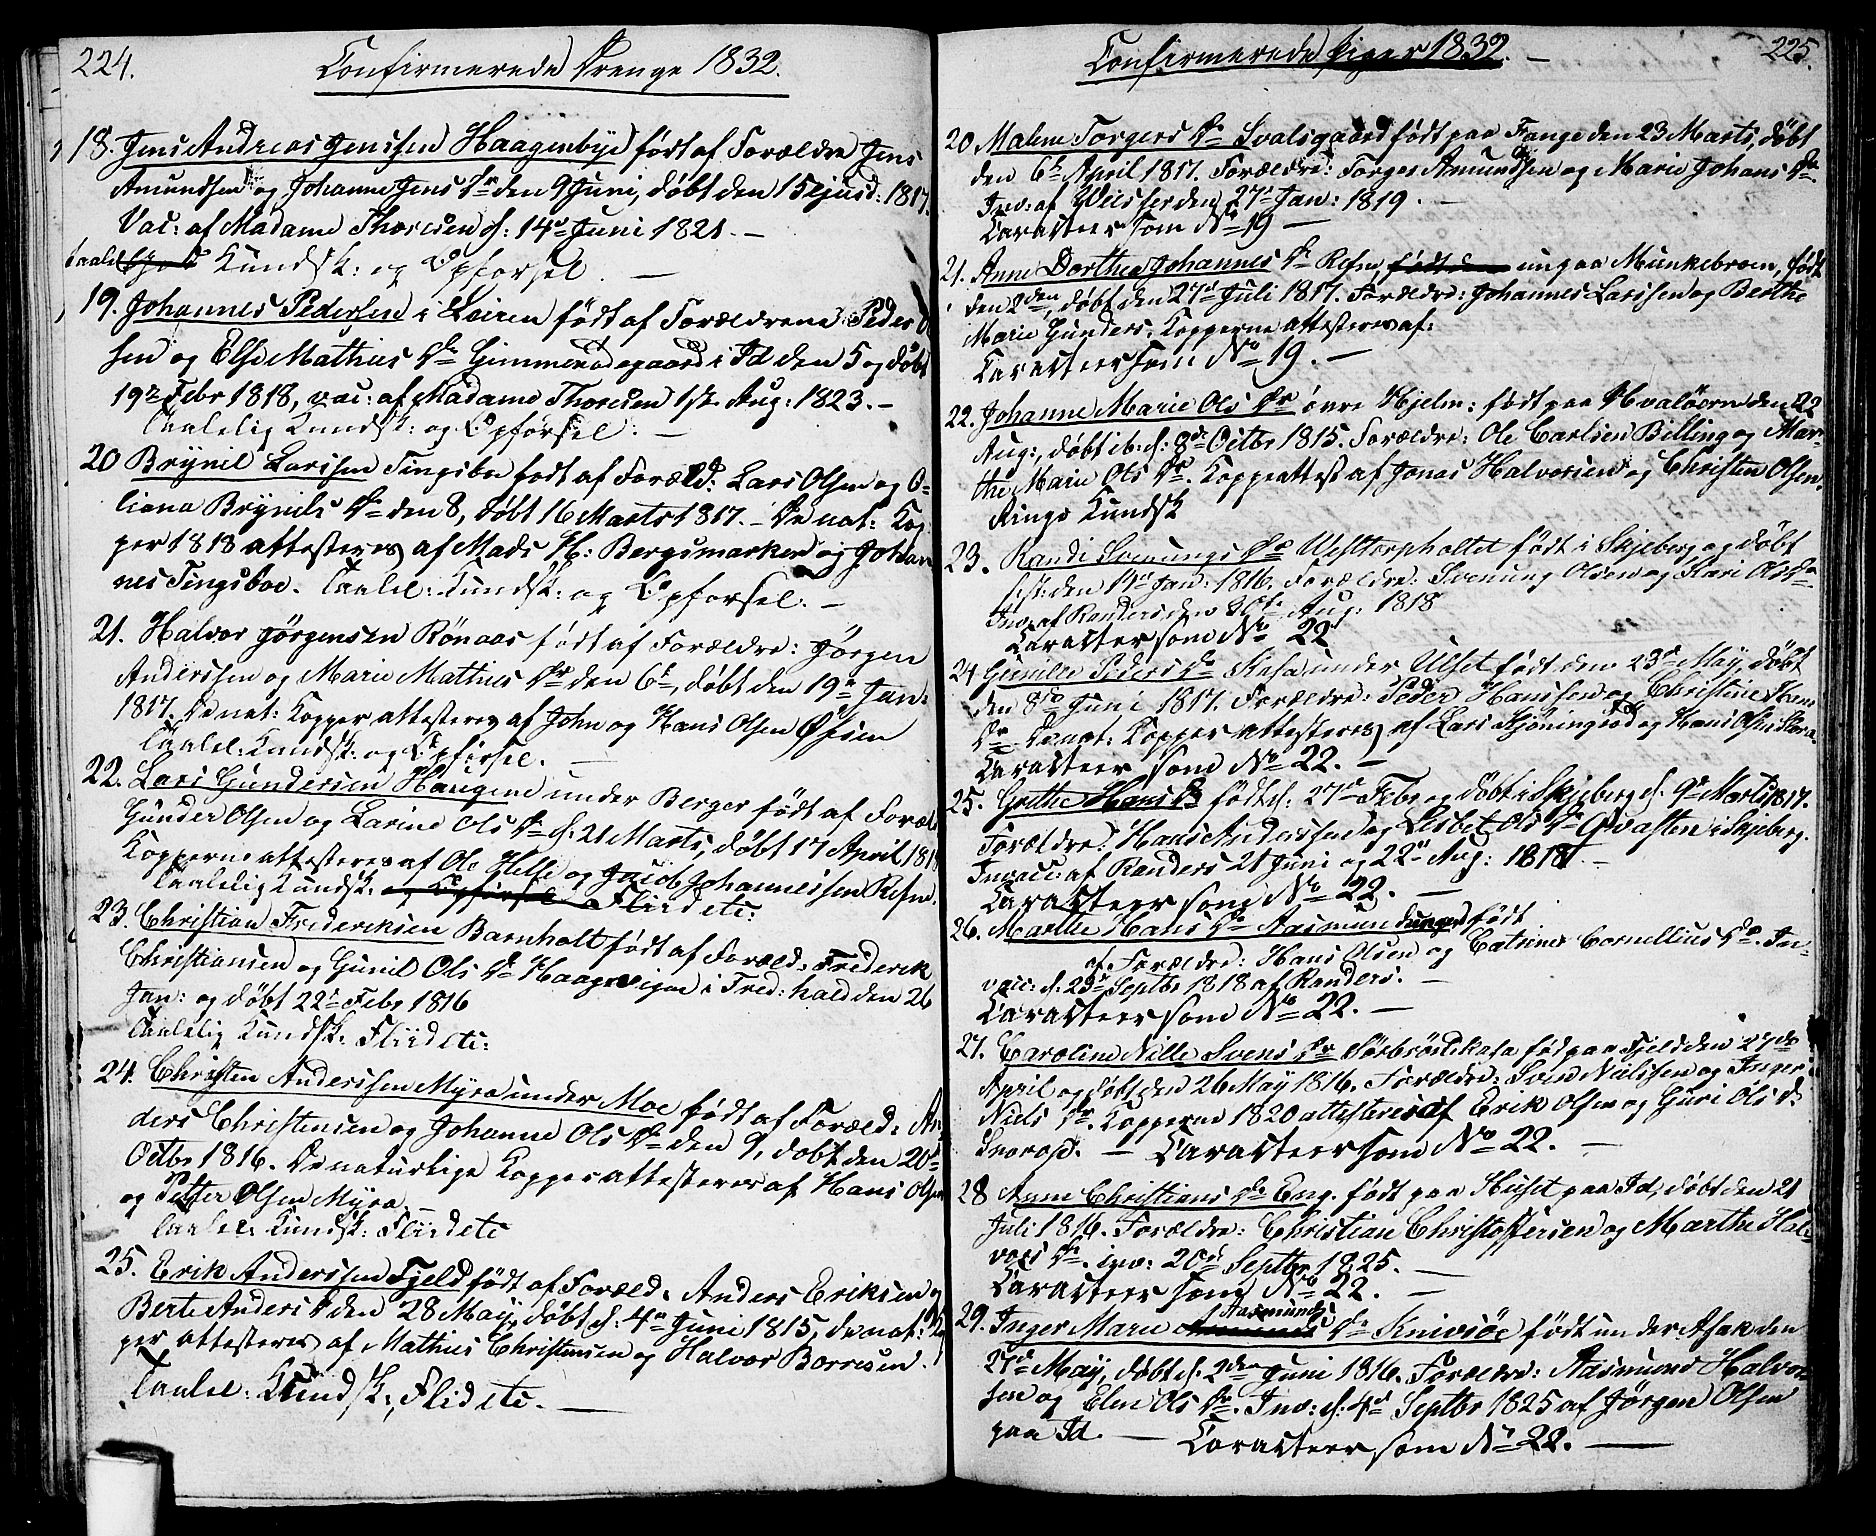 224.
Confirmerede Drenge 1832.
18. Jens Andreas Jenssen Haagenbye født af Forældre Jens
Amundsen og Johanne Jens Dr den 9 Juni, døbt den 15 ejusd: 1817.
Vac: af Madame Thoresen d: 14de Juni 1821. —
taalel Kundsk: og Opførsel. —
19. Johannes Pedersen i Leiren født af Forældrene Peder
sen og Else Mathias Dr Gimmerødegaard i Id den 5 og døbt
19de Febr 1818, vac: af Madame Thoresen 1ste Aug: 1823. —
Taalelig Kundsk: og Opførsel. —
20 Brynil Larssen Tingsboe født af Foræld: Lars Olsen og O-
liana Brynils Dr den 8, døbt 16 Marts 1817. — De nat: Kop
per 1818 attesteres af Mads H: Bergsmarken og Johan
nes Tingsboe. Taalel: Kundsk: og Opførsel: —
21. Halvor Jørgensen Rönaas født af Forældre: Jørgen
Anderssen og Marie Mathias Dr den 6te, døbt den 19de Jan:
1817. De nat: Kopper attesteres af John og Hans Olsen
Taalel: Kundsk: og Opførsel. —
22. Lars Gundersen Haugene under Berger født af Foræld
Gunder Olsen og Larine Ols Dr d: 21 Marts, døbt 17 April 181
Kopperne attesteres af Ole Helle og Jacob Johannessen Refne.
Taalelig Kundsk: og Opførsel Fliid etc:
23. Christian Frederiksen Barnholt født af Foræld: Frederik
Christiansen og Gunil Ols Dr Haagensveigen i Fred: hald den 26
Jan: og døbt 22de Febr 1816
Taalelig Kundsk: Fliid etc:
24. Christen Anderssen Myra under Moe født af Foræld: An
ders Christensen og Johanne Ols Dr den 9, døbt den 20de
Octbr 1816. De naturlige Kopper attesteres af Hans Olsen
og Petter Olsen Myra
Taalel: Kundsk: Fliid etc
25. Erik Anderssen Fjeld født af Foræld: Anders Eriksen og
Berte Anders D den 28 May, døbt d: 4de Juni 1815, de nat: Kop
per attesteres af Mathias Christensen og Halvor Borresen.
Taalel: Kundsk: Flid etc. —
Confirmerede Piger 1832. —
225.
20 Malene Torgers Dr Svalsgaard født paa Fange den 23 Marts, døbt
den 6te April 1817. Forældre: Torger Amundsen og Marie Johans Dr.
Inv: af den 27de Jan: 1819. —
Caracteer som No 19 —
21. Anne Dorthea Johannes Dr Refne, født paa Munkebroen, født
den 2den, døbt den 27de Juli 1817. Forældre: Johannes Larssen og Berthe
Marie Gunders. Kopperne attesteres af:
Caracteer som No 19. —
22. Johanne Marie Ols Dr övre Hjelm: født paa Hvalöerne den 22
Aug:, døbt ib: d: 8de Octbr 1815. Forældre: Ole Carlsen Billing og Mar
the Marie Ols Dr. Koppeattest af Jonas Halvorsen og Christen Olsen.
Ringe Kundsk
23. Randi Svenungs Dr Westtorpholtet født i Skjeberg og døbt
sst: den 14de Jan: 1816. Forældre: Svenung Olsen og Kari Ols Dr
Inv: af Randers den 30te Aug: 1818
Caracteer som No 22
24 Gunille Peders Dr under Ulset født den 23de May, døbt
den 8de Juni 1817. Forældre: Peder Hanssen og Christine Hans
Dr De nat: Kopper attesteres af Lars og Hans Olsen
Caracteer som No 22. —
25. Grethe Hans D født d: 27de Febr og døbt i Skjeberg d: 9de Marts 1817.
Forældre: Hans Anderssen og Lisbet Ols Dr i Skjeberg.
Invacc: af Randers 21 Juni og 22de Aug: 1818 —
Caracteer som No 22. —
26. Marthe Hans Dr Aasmundunge født
af Forældre: Hans Olsen og Catrine Cornellius Dr. In-
vacc: d: 23de Septbr 1818 af Randers. —
Caracteer som No 22. —
27. Caroline Nille Svens Dr Sörbrödskasa fød paa Fjeld den 27de
April og døbt den 26 May 1816. Forældre: Sven Nielsen og Inger
Niels Dr. Kopperne 1820 attesteres af Erik Olsen og Guri Ols D.
— Caracteer som No 22. —
28 Anne Christians Dr Eng. født paa Huset paa Id, døbt den 21
Juli 1816. Forældre: Christian Christoffersen og Marthe Hal-
vors Dr. inv: 20de Septbr 1825. —
Caracteer som No 22. —
29. Inger Marie Aasmunds Dr Knivsöe født under Asak den
27de May, døbt d: 2den Juni 1816. Forældre: Aasmund Halvor
sen og Elen Ols Dr. Inv: d: 4de Septbr 1825 af Jørgen Olsen
paa Id. — Caracteer som No 22. —